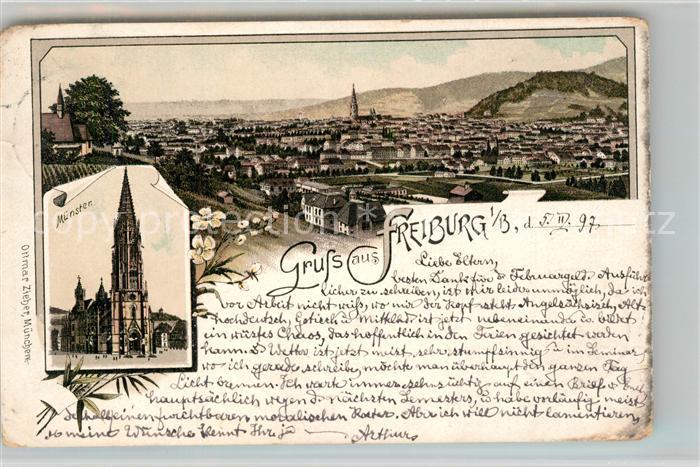 Münster.
Ottmar Zieher, München.
Gruß aus FREIBURG i/B, d. 5. III. 97.
Liebe Eltern,
besten Dank für d. Februargeld. Ausführ-
licher zu schreiben, ist mir leider unmöglich, da ich
vor Arbeit nicht weiß, wo mir der Kopf steht. Angelsächsisch, Alt-
hochdeutsch, Gotisch u. Mittelhd ist jetzt nebeneinander u. bildet
ein wüstes Chaos, das hoffentlich in den Ferien gesichtet werden
kann. D. Wetter ist jetzt meist sehr stumpfsinnig u. im Seminar
wo ich gerade schreibe, möchte man überhaupt den ganzen Tag
Licht brennen. Ich warte immer sehnsüchtig auf einen Brief v. Euch
hauptsächlich wegen d. nächsten Semesters, u. habe vorläufig meist
deshalb einen furchtbaren moralischen Kater. Aber ich will nicht lamentieren,
meine Wünsche kennt Ihr ja
Arthur